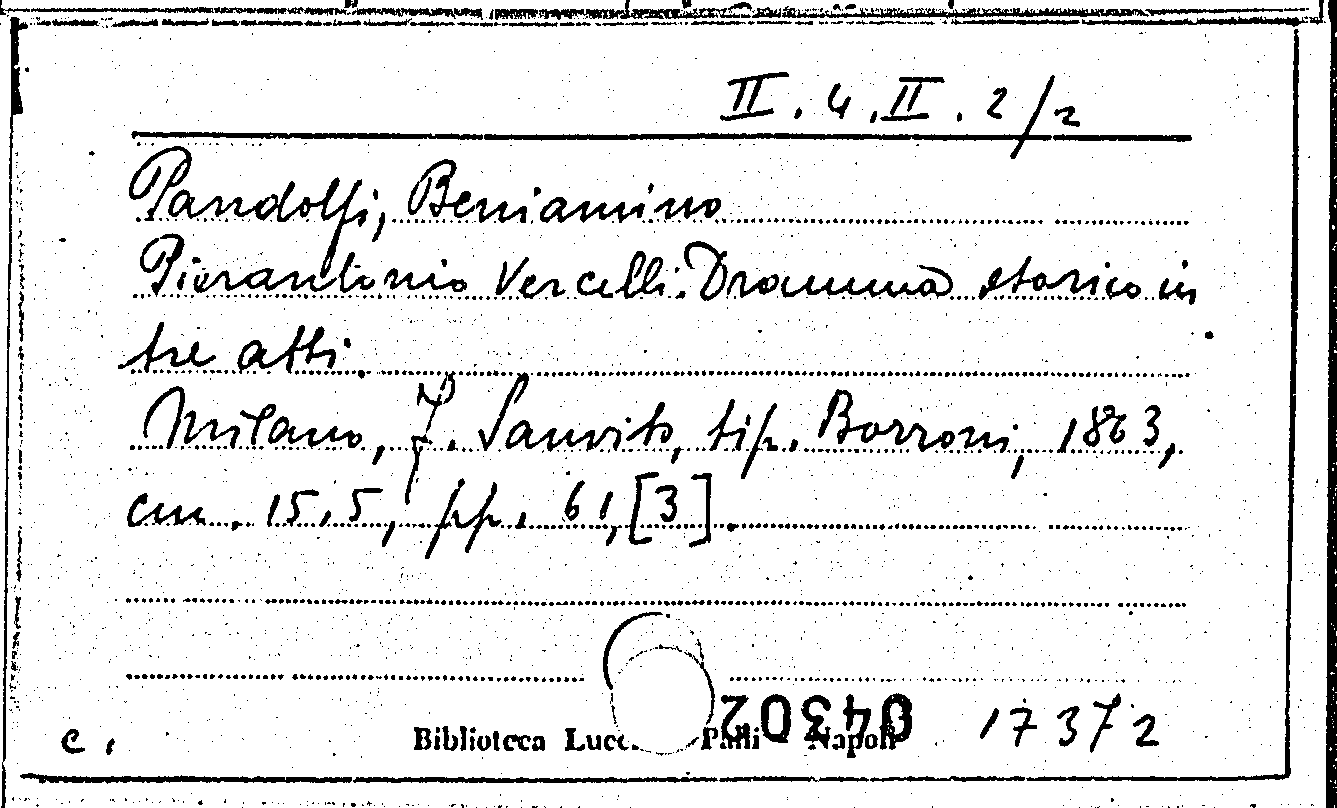 II.4.II.2/2
Pandolfi, Beniamino
Pierantonio Vercelli. Dramma storico in
tre atti.
Milano, F. Sanvito, tip. Borroni, 1863,
cm. 15,5, pp. 61,[3].
04302
c. Biblioteca Palli Napoli 17372